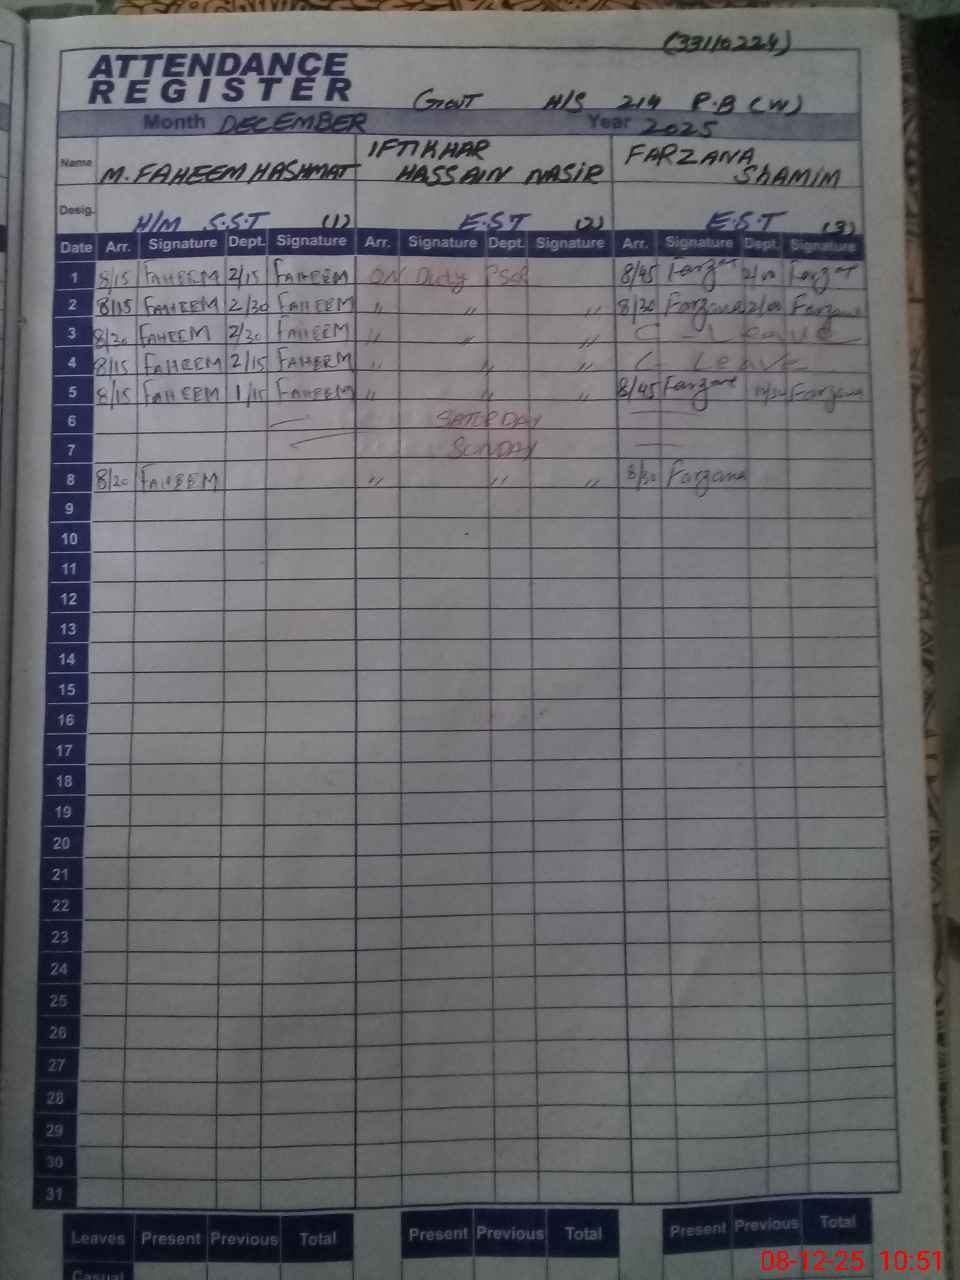 (33110224)
ATTENDANCE
REGISTER
Govt H/S 214 R.B (W)
Month DECEMBER Year 2025
Name M. FAHEEM HASHMAT IFTIKHAR HASSAIN NASIR FARZANA SHAMIM
Desig. H/M S.S.T (1) E.S.T (2) E.S.T (3)
Date Arr. Signature Dept. Signature Arr. Signature Dept. Signature Arr. Signature Dept. Signature
1 8/15 FAHEEM 2/15 FAHEEM ON Duty 8/45
2 8/15 FAHEEM 2/30 FAHEEM " " " 8/30 Farzana Farzana
3 8/20 FAHEEM 2/30 FAHEEM " " " C - Leave
4 8/15 FAHEEM 2/15 FAHEEM " " " C - Leave
5 8/15 FAHEEM 1/15 FAHEEM " " " 8/45 Farzana
6 SATURDAY
7 SUNDAY
8 8/20 FAHEEM " " " 8/30 Farzana
9
10
11
12
13
14
15
16
17
18
19
20
21
22
23
24
25
26
27
28
29
30
31
Leaves Present Previous Total Present Previous Total Present Previous Total
Casual
08-12-25 10:51